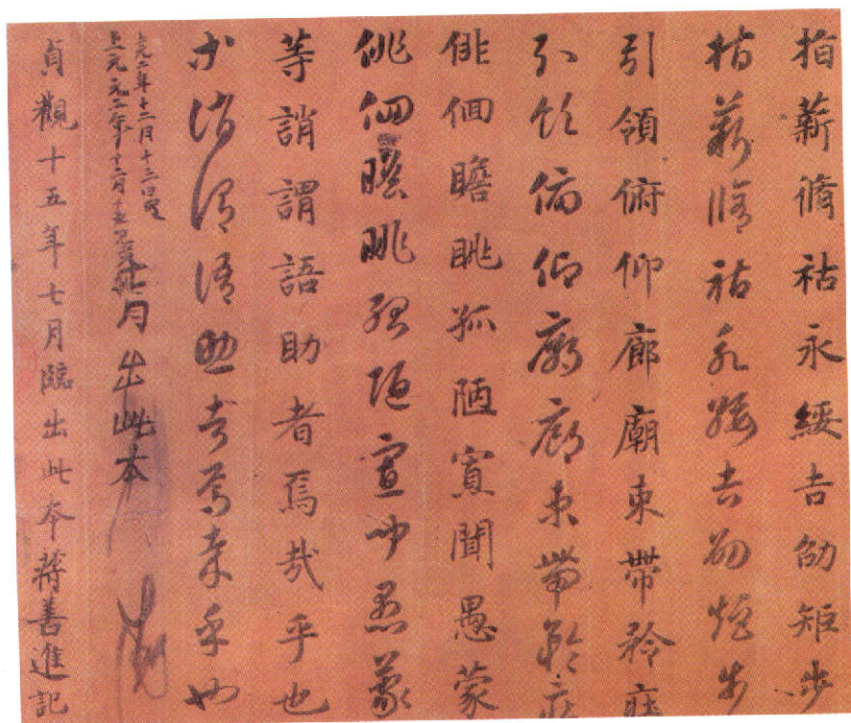 指薪脩祜永綏吉劭矩步
指薪脩祜永綏吉劭矩步
引領俯仰廊廟束帶矜庄
引領俯仰廊廟束帶矜庄
俳佪瞻眺孤陋寡聞愚蒙
俳佪瞻眺孤陋寡聞愚蒙
等誚謂語助者焉哉乎也
等誚謂語助者焉哉乎也
元二年十二月十三日
上元元二年十二月十五日
月出此本
貞觀十五年七月臨出此本蔣善進記